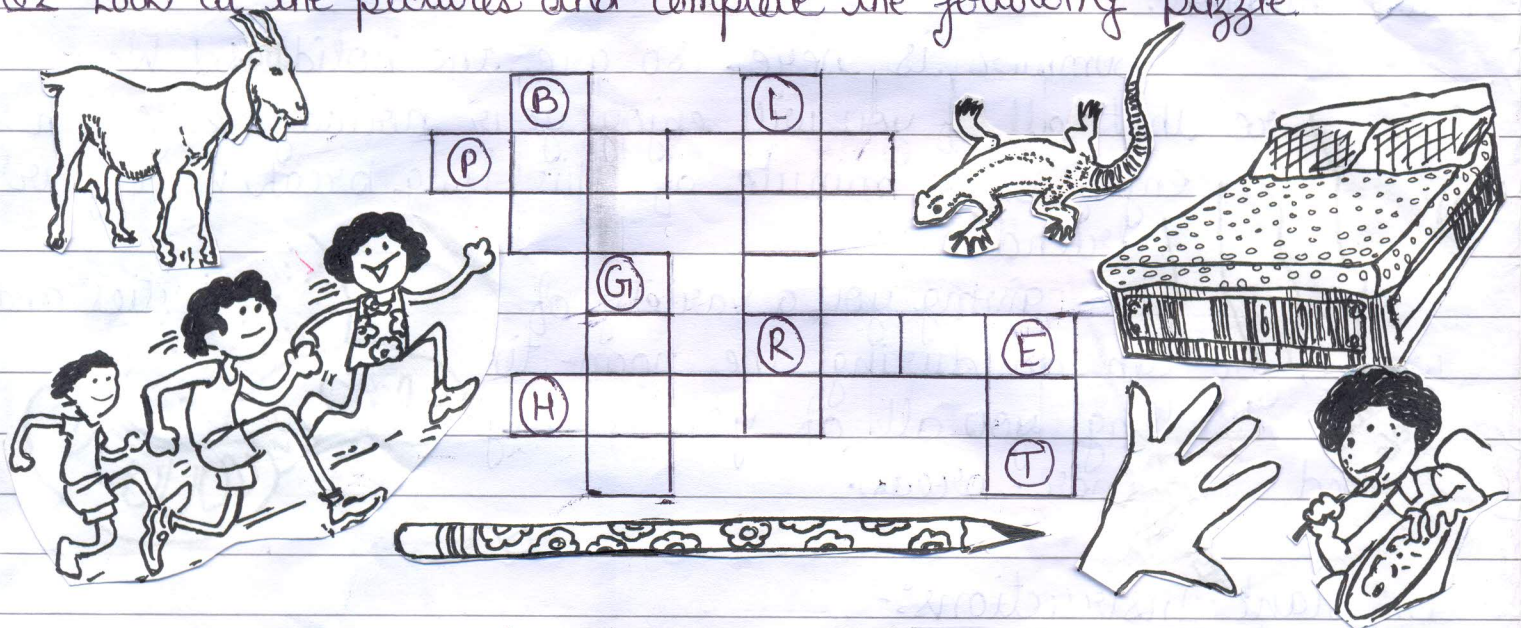 Look at the pictures and complete the following puzzle.
B L
P
G
R E
H
T